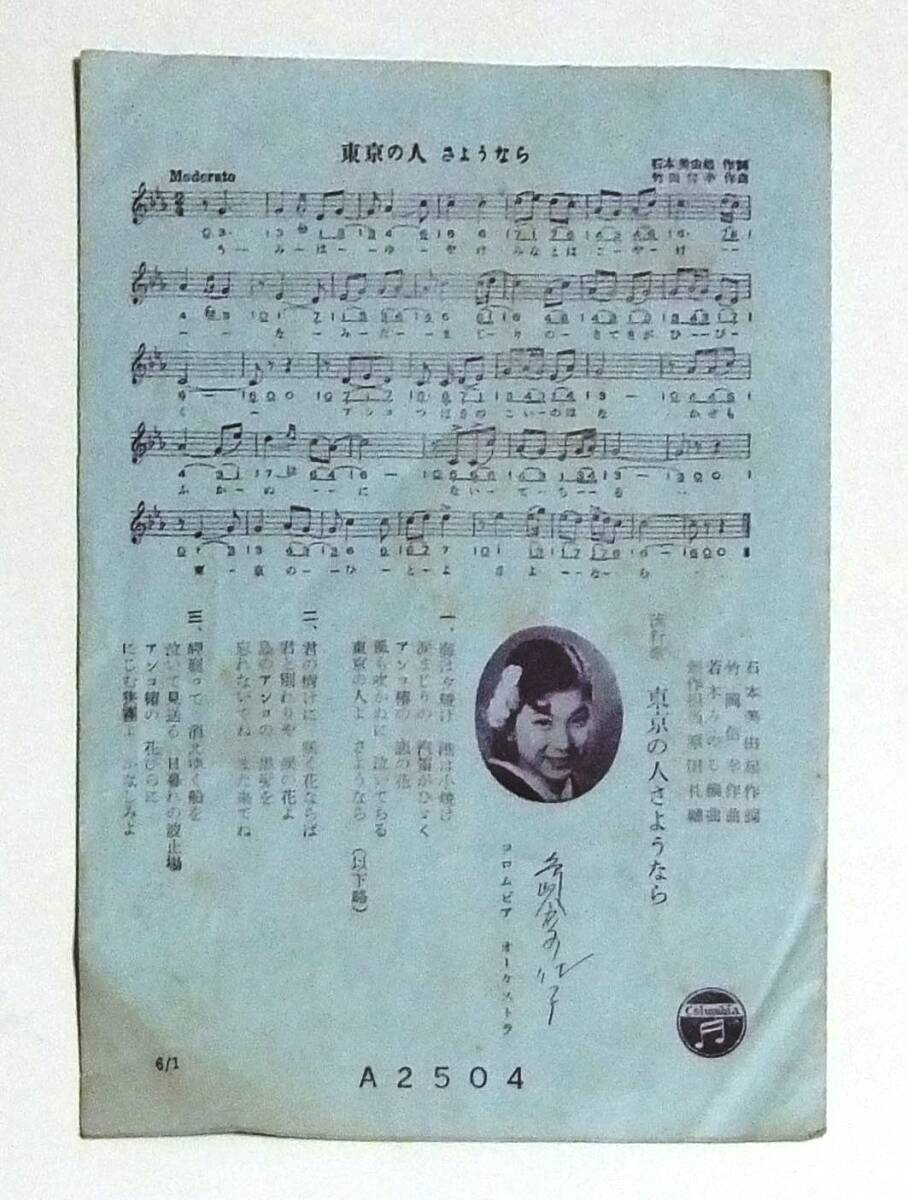 東京の人 さようなら
石本美由起 作詞
竹岡信幸 作曲
Moderato
うーみはーゆーやけ みなとはこーやーけ
なーみだーーまじーりの きてきがひーびー
く アンコつばきの こいーのはな かぜも
ふかーぬーーに ないーてーちーる
東ー京のーひーとーよ さよーーなーら
石本美由起作詞
竹岡信幸作曲
若木みのる編曲
流行歌 東京の人さようなら
コロムビア オーケストラ
一、海は夕焼け 港は小焼け
涙まじりの 汽笛がひゞく
アンコ椿の 恋の花
風も吹かぬに 泣いてちる
東京の人よ さようなら (以下略)
二、君の情けに 咲く花ならば
君と別わりや 涙の花よ
島のアンコの 黒髪を
忘れないでね また来てね
三、岬廻って 消えゆく船を
泣いて見送る 日暮れの波止場
アンコ椿の 花びらに
にじむ夜霧よ かなしみよ
Columbia
6/1
A2504